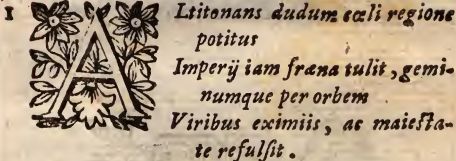 1 ALtitonans dudum cœli regione
potitus
Imperÿ iam fræna tulit, gemi-
numque per orbem
Viribus eximiis, ac maiesta-
te refulsit.